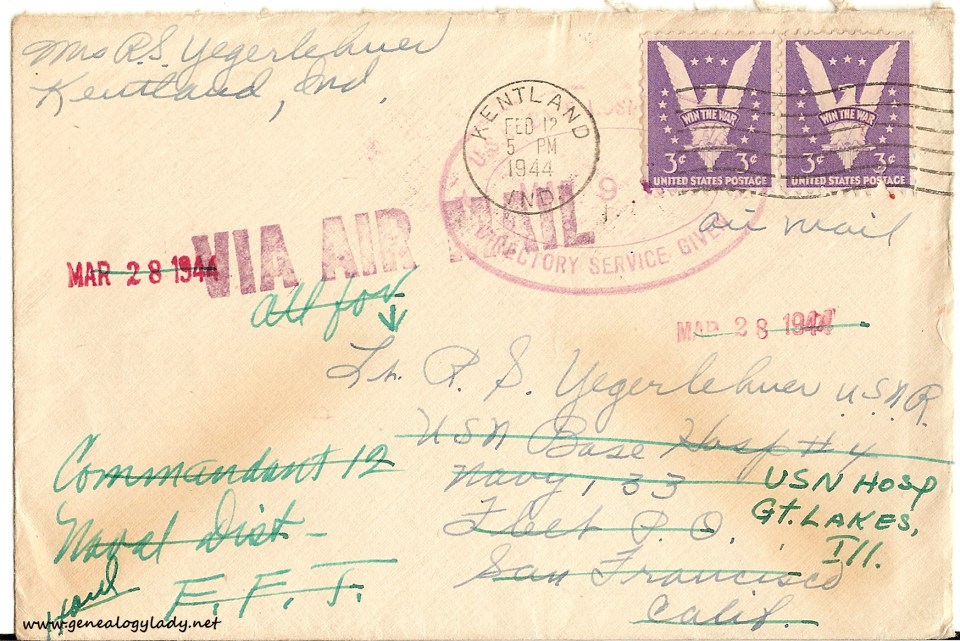 Mrs R.S. Yegerlehner
Kentland, Ind.
KENTLAND
FEB 12
5 PM
1944
IND.
WIN THE WAR
3¢ 3¢
UNITED STATES POSTAGE
WIN THE WAR
3¢ 3¢
UNITED STATES POSTAGE
9
DIRECTORY SERVICE GIVEN
air mail
VIA AIR MAIL
MAR 28 1944
att for
MAR 28 1944
Lt. R. S. Yegerlehner U.S.N.R.
USN Base Hosp #4
Navy, 133
Fleet P. O.
San Francisco
Calif.
USN Hosp
Gt. LAKES,
Ill.
Commandant 12
Naval Dist -
E. F. T.
www.genealogylady.net